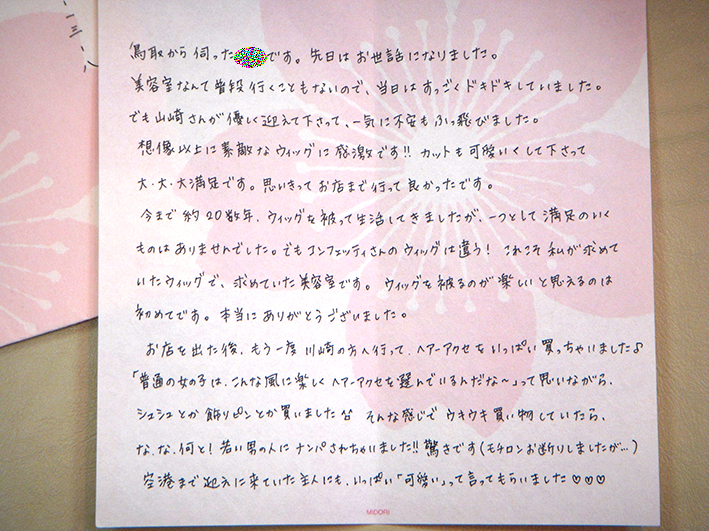 鳥取から伺ったです。先日はお世話になりました。
美容室なんて普段行くこともないので、当日はすっごくドキドキしていました。
でも山崎さんが優しく迎えて下さって、一気に不安もふっ飛びました。
想像以上に素敵なウィッグに感激です!! カットも可愛いくして下さって
大・大・大満足です。思いきってお店まで行って良かったです。
今まで約20数年、ウィッグを被って生活してきましたが、一つとして満足のいく
ものはありませんでした。でもコンフェッティさんのウィッグは違う! これこそ私が求めて
いたウィッグで、求めていた美容室です。ウィッグを被るのが楽しいと思えるのは
初めてです。本当にありがとうございました。
お店を出た後、もう一度川崎の方へ行って、ヘアーアクセをいっぱい買っちゃいました♪
「普通の女の子は、こんな風に楽しくヘアーアクセを選んでいるんだな〜」って思いながら、
シュシュとか飾りピンとか買いました そんな感じでウキウキ買い物していたら、
な、な、何と! 若い男の人にナンパされちゃいました!! 驚きです(モチロンお断りしましたが…)
空港まで迎えに来ていた主人にも、いっぱい「可愛い」って言ってもらいました♡♡♡
MIDORI